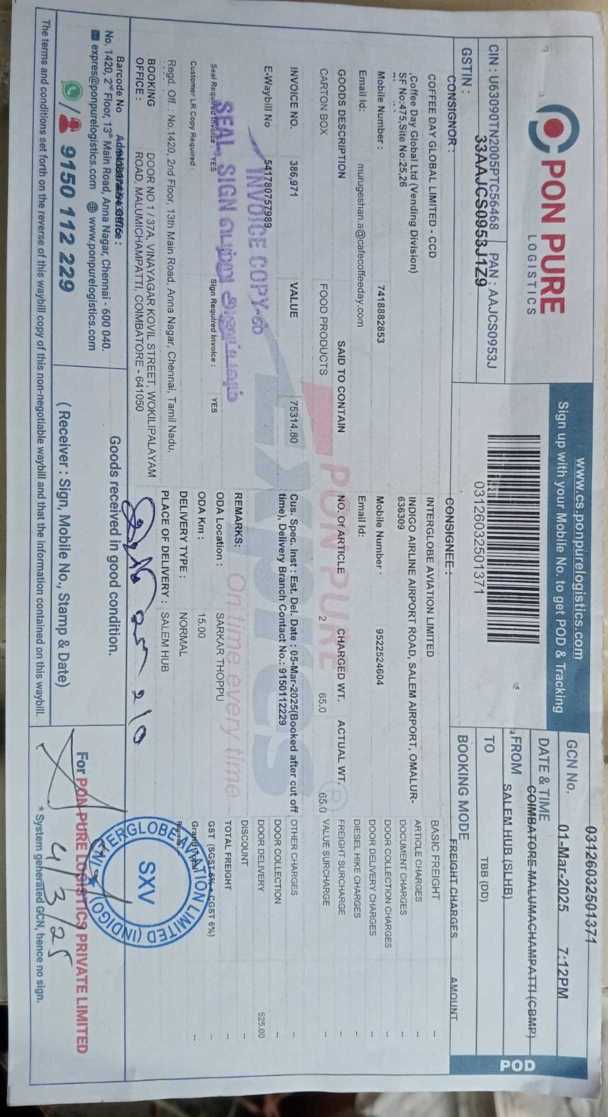 PON PURE
LOGISTICS
www.cs.ponpurelogistics.com
Sign up with your Mobile No. to get POD & Tracking
GCN No. 03126032501371
DATE & TIME 01-Mar-2025 7:12PM
CIN : U63090TN2005PTC56468 PAN : AAJCS0953J
GSTIN : 33AAJCS0953J1Z9
03126032501371
COIMBATORE-MALUMACHAMPATTI (CBMP)
FROM SALEM HUB (SLHB)
TO TBB (DD)
BOOKING MODE
POD
CONSIGNOR :
COFFEE DAY GLOBAL LIMITED - CCD
,Coffee Day Global Ltd (Vending Division)
SF No:475,Site No:25,26
Mobile Number : 7418882853
Email Id: murugeshan.a@cafecoffeeday.com
CONSIGNEE :
INTERGLOBE AVIATION LIMITED
INDIGO AIRLINE AIRPORT ROAD, SALEM AIRPORT, OMALUR-
636309
Mobile Number : 9522524604
Email Id:
FREIGHT CHARGES AMOUNT
BASIC FREIGHT -
ARTICLE CHARGES -
DOCUMENT CHARGES -
DOOR COLLECTION CHARGES -
DOOR DELIVERY CHARGES -
DIESEL HIKE CHARGES -
FREIGHT SURCHARGE -
VALUE SURCHARGE -
OTHER CHARGES -
DOOR COLLECTION -
DOOR DELIVERY 525.00
DISCOUNT -
TOTAL FREIGHT -
GST (SGST 6% CGST 6%) -
GOODS DESCRIPTION SAID TO CONTAIN NO. Of ARTICLE CHARGED WT. ACTUAL WT.
CARTON BOX FOOD PRODUCTS 2 65.0 65.0
INVOICE NO. 386,971 VALUE 75314.80
E-Waybill No 541780757989
Cus. Spec. Inst : Est. Del. Date : 05-Mar-2025(Booked after cut off
time), Delivery Branch Contact No.: 9150112229
REMARKS:
PON PURE
EXPRESS
On time every time
INVOICE COPY-ல்
SEAL, SIGN பெற்று அனுப்பவும்
Seal Required Invoice : YES Sign Required Invoice : YES
Customer LR Copy Required :
ODA Location : SARKAR THOPPU
ODA Km : 15.00
DELIVERY TYPE : NORMAL
PLACE OF DELIVERY : SALEM HUB
Regd. Off. : No.1420, 2nd Floor, 13th Main Road, Anna Nagar, Chennai, Tamil Nadu.
BOOKING OFFICE : DOOR NO 1 / 37A, VINAYAGAR KOVIL STREET, WOKILIPALAYAM
ROAD, MALUMICHAMPATTI, COIMBATORE - 641050
Barcode No
Administrative Office :
No. 1420, 2nd Floor, 13th Main Road, Anna Nagar, Chennai - 600 040.
expres@ponpurelogistics.com www.ponpurelogistics.com
9150 112 229
Goods received in good condition.
( Receiver : Sign, Mobile No., Stamp & Date)
INTERGLOBE AVIATION LIMITED (INDIGO)
SXV
For PON PURE LOGISTICS PRIVATE LIMITED
4/3/25
* System generated GCN, hence no sign.
The terms and conditions set forth on the reverse of this waybill copy of this non-negotiable waybill and that the information contained on this waybill.